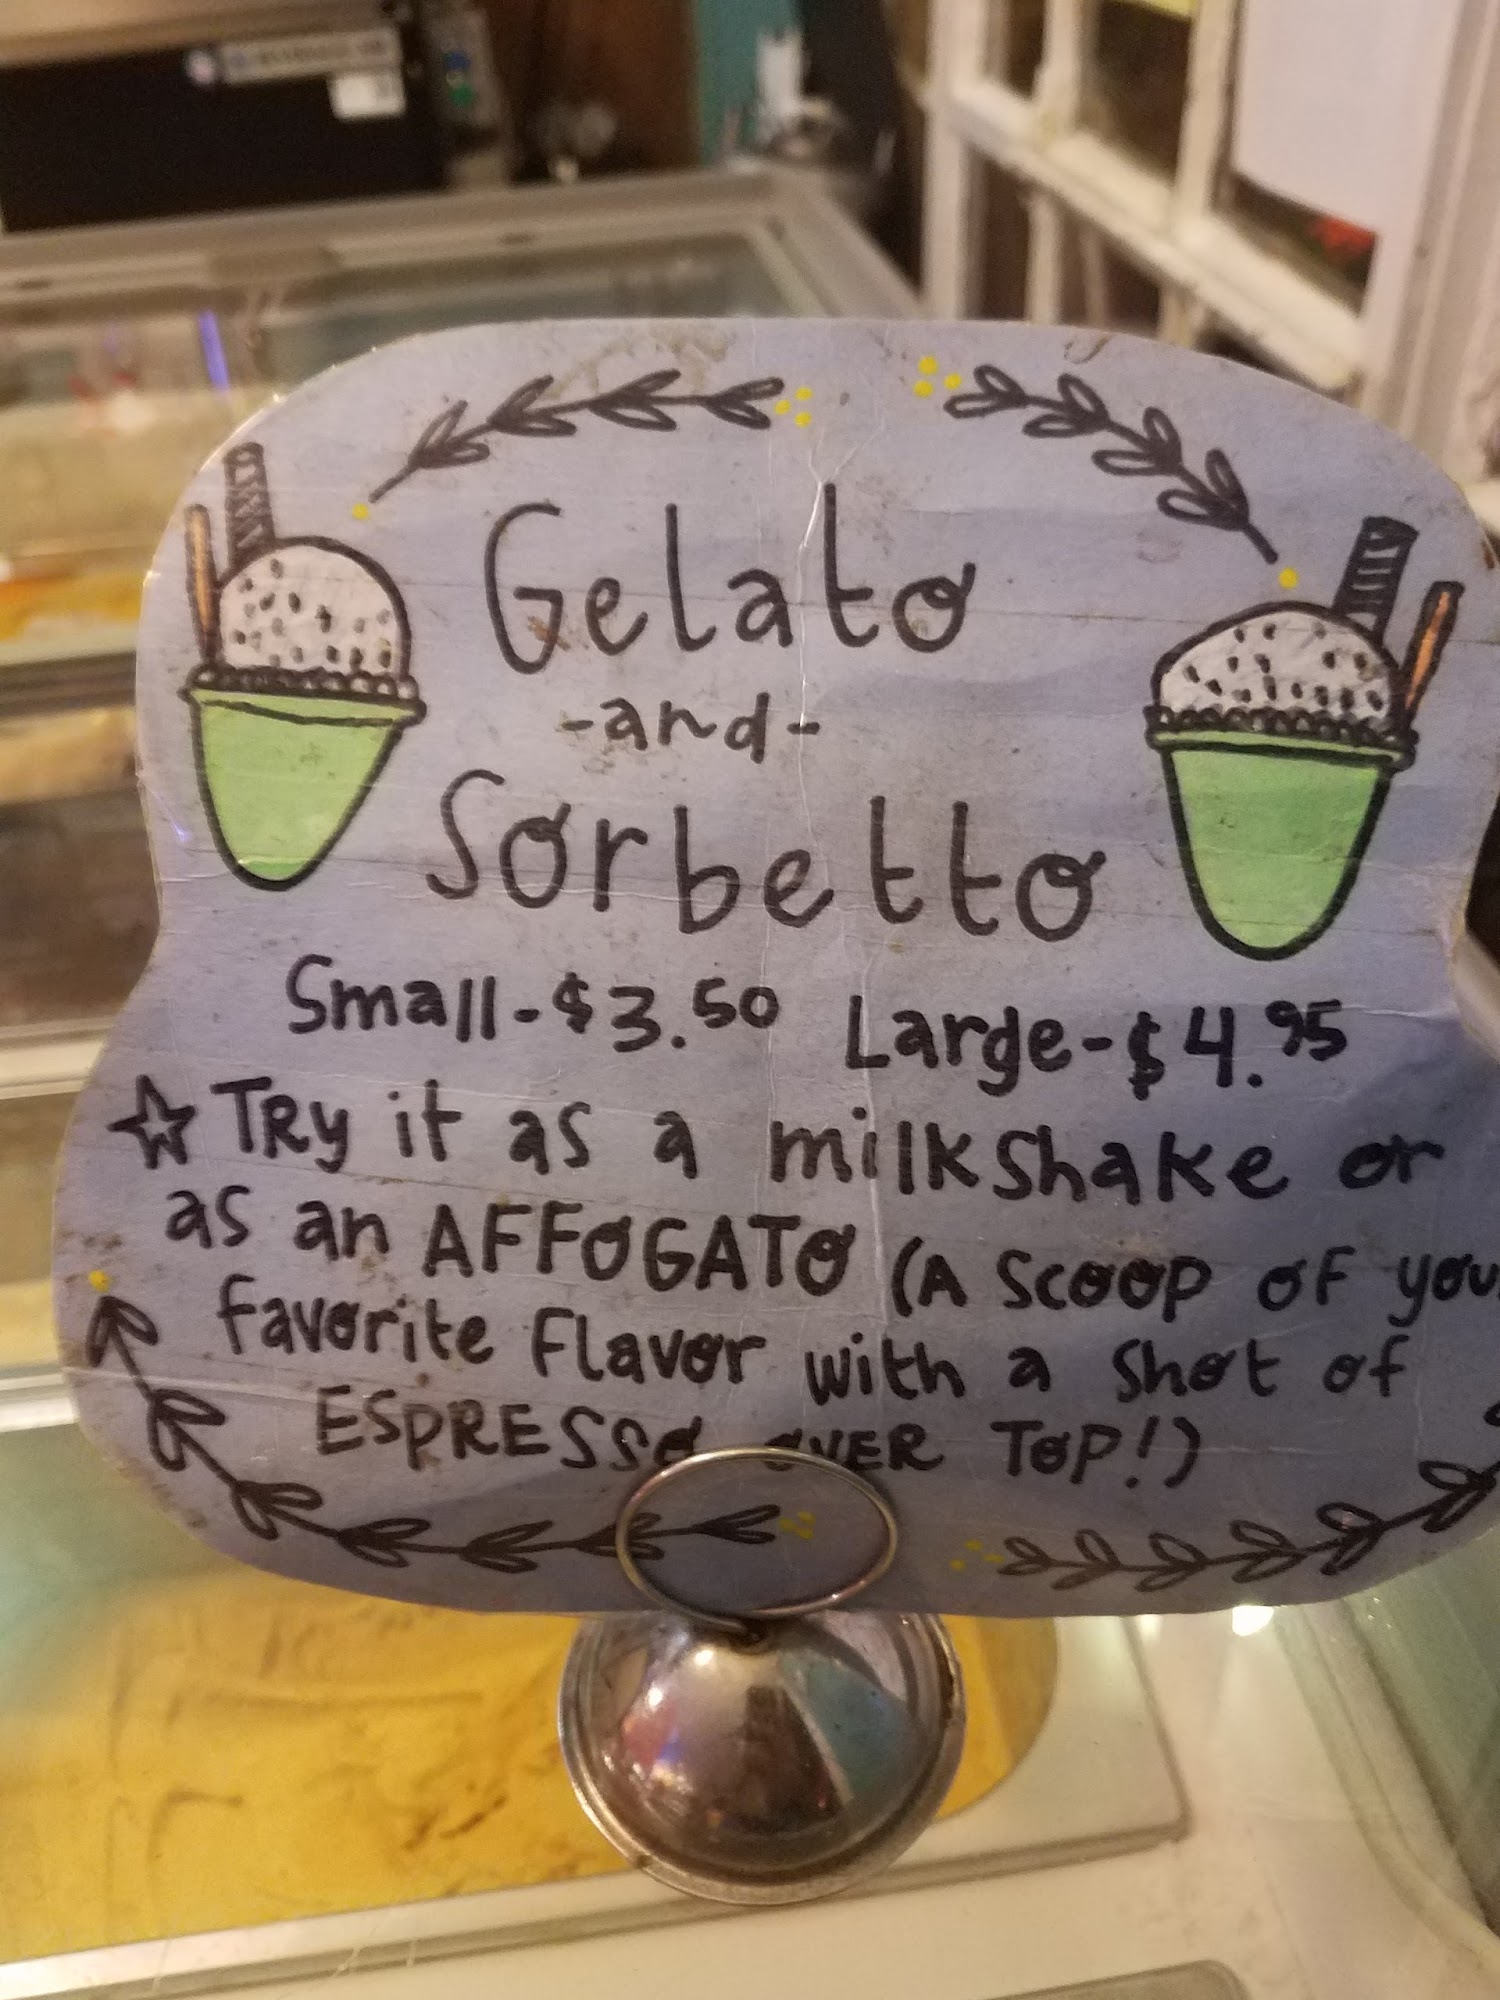 Gelato
-and-
Sorbetto
Small-$3.50 Large-$4.95
☆ TRy it as a milkshake or
as an AFFOGATO (A scoop of you
favorite flavor with a shot of
ESPRESSO OVER TOP!)